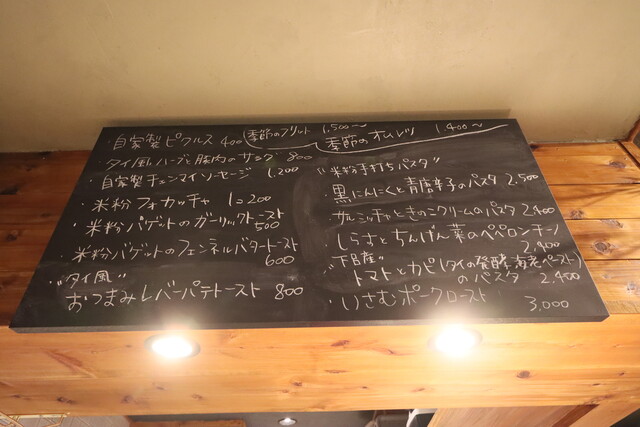 ・自家製ピクルス 400
季節のフリット 1,500〜
季節のオムレツ 1,400〜
・タイ風ハーブと豚肉のサラダ 800
・自家製チェンマイソーセージ 1,200
・米粉フォカッチャ 1コ200
・米粉バゲットのガーリックトースト
500
・米粉バゲットのフェンネルバタートースト
600
"タイ風"
おつまみレバーパテトースト 800
"米粉手打ちパスタ"
・黒にんにくと青唐辛子のパスタ 2,500
・サルシッチャときのこクリームのパスタ 2,400
・しらすとちんげん菜のペペロンチーノ
2,400
トマトとカピ(タイの発酵海老ペースト)
のパスタ 2,400
・いさむポークロースト
3,000